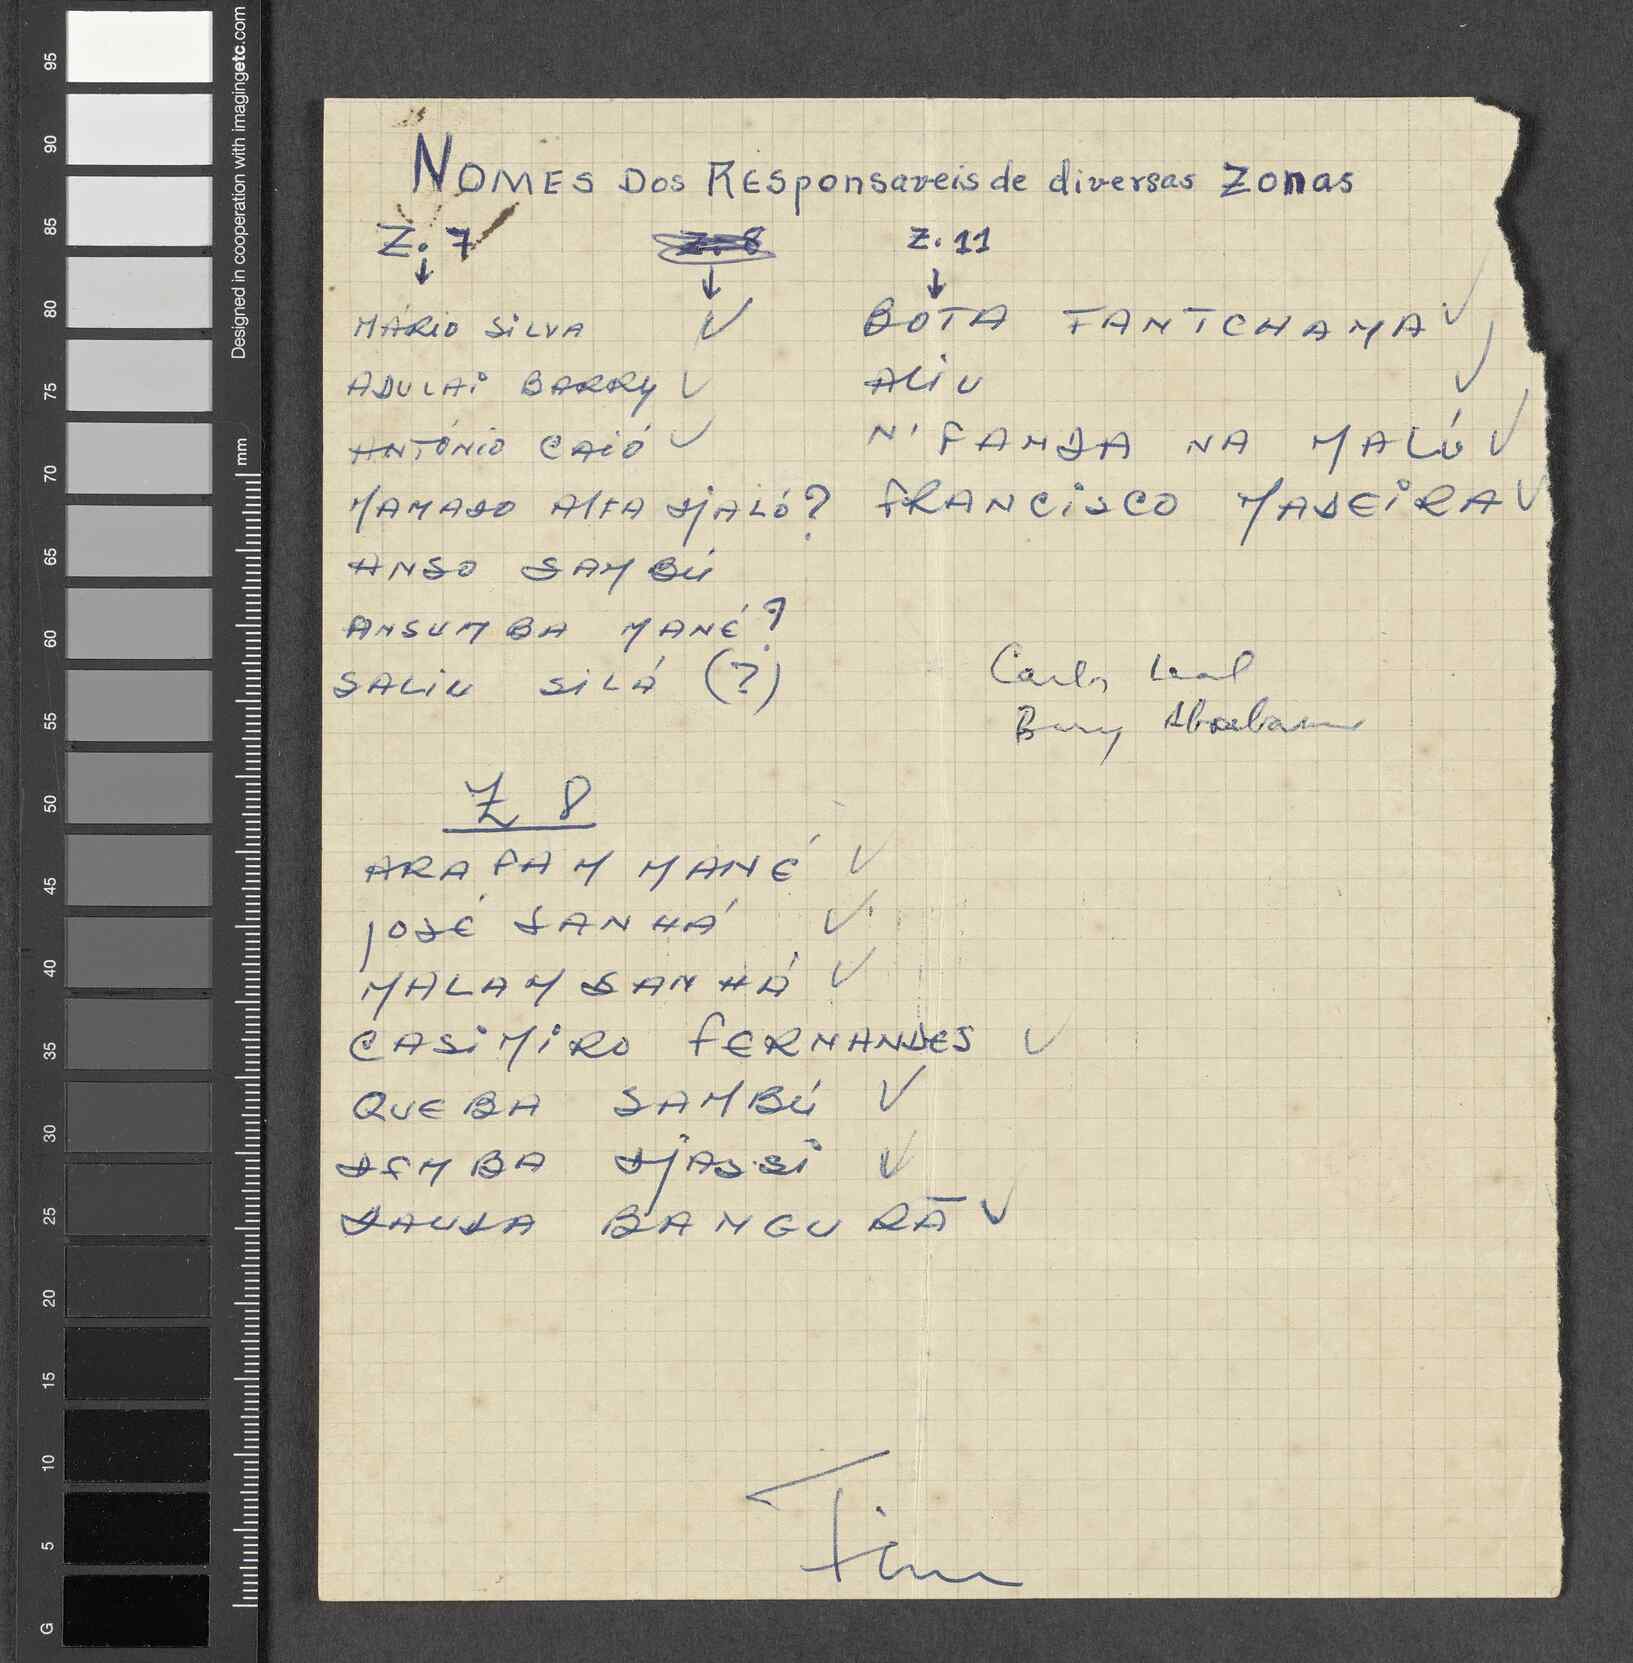 NOMES Dos Responsaveis de diversas Zonas
Z. 7
Z. 8
Z. 11
MÁRIO SILVA ✓
ADULAI BARRY ✓
ANTÓNIO CAIÓ ✓
MAMADO ALFA DJALÓ?
ANSO SAMBÚ
ANSUMBA MANÉ?
SALIU SILÁ (?)
BOTA FANTCHAMA ✓
ALIU ✓
N' FAMDA NA MALÚ ✓
FRANCISCO MADEIRA ✓
Carlos Leal
Z 8
ARAFAM MANÉ ✓
JOSÉ SANHÁ ✓
MALAM SANHÁ ✓
CASIMIRO FERNANDES ✓
QUEBA SAMBÚ ✓
DEMBA DJASSI ✓
DAUDA BANGURÃ ✓
Fim
Designed in cooperation with imagingetc.com
mm
95
90
85
80
75
70
65
60
55
50
45
40
35
30
25
20
15
10
5
G